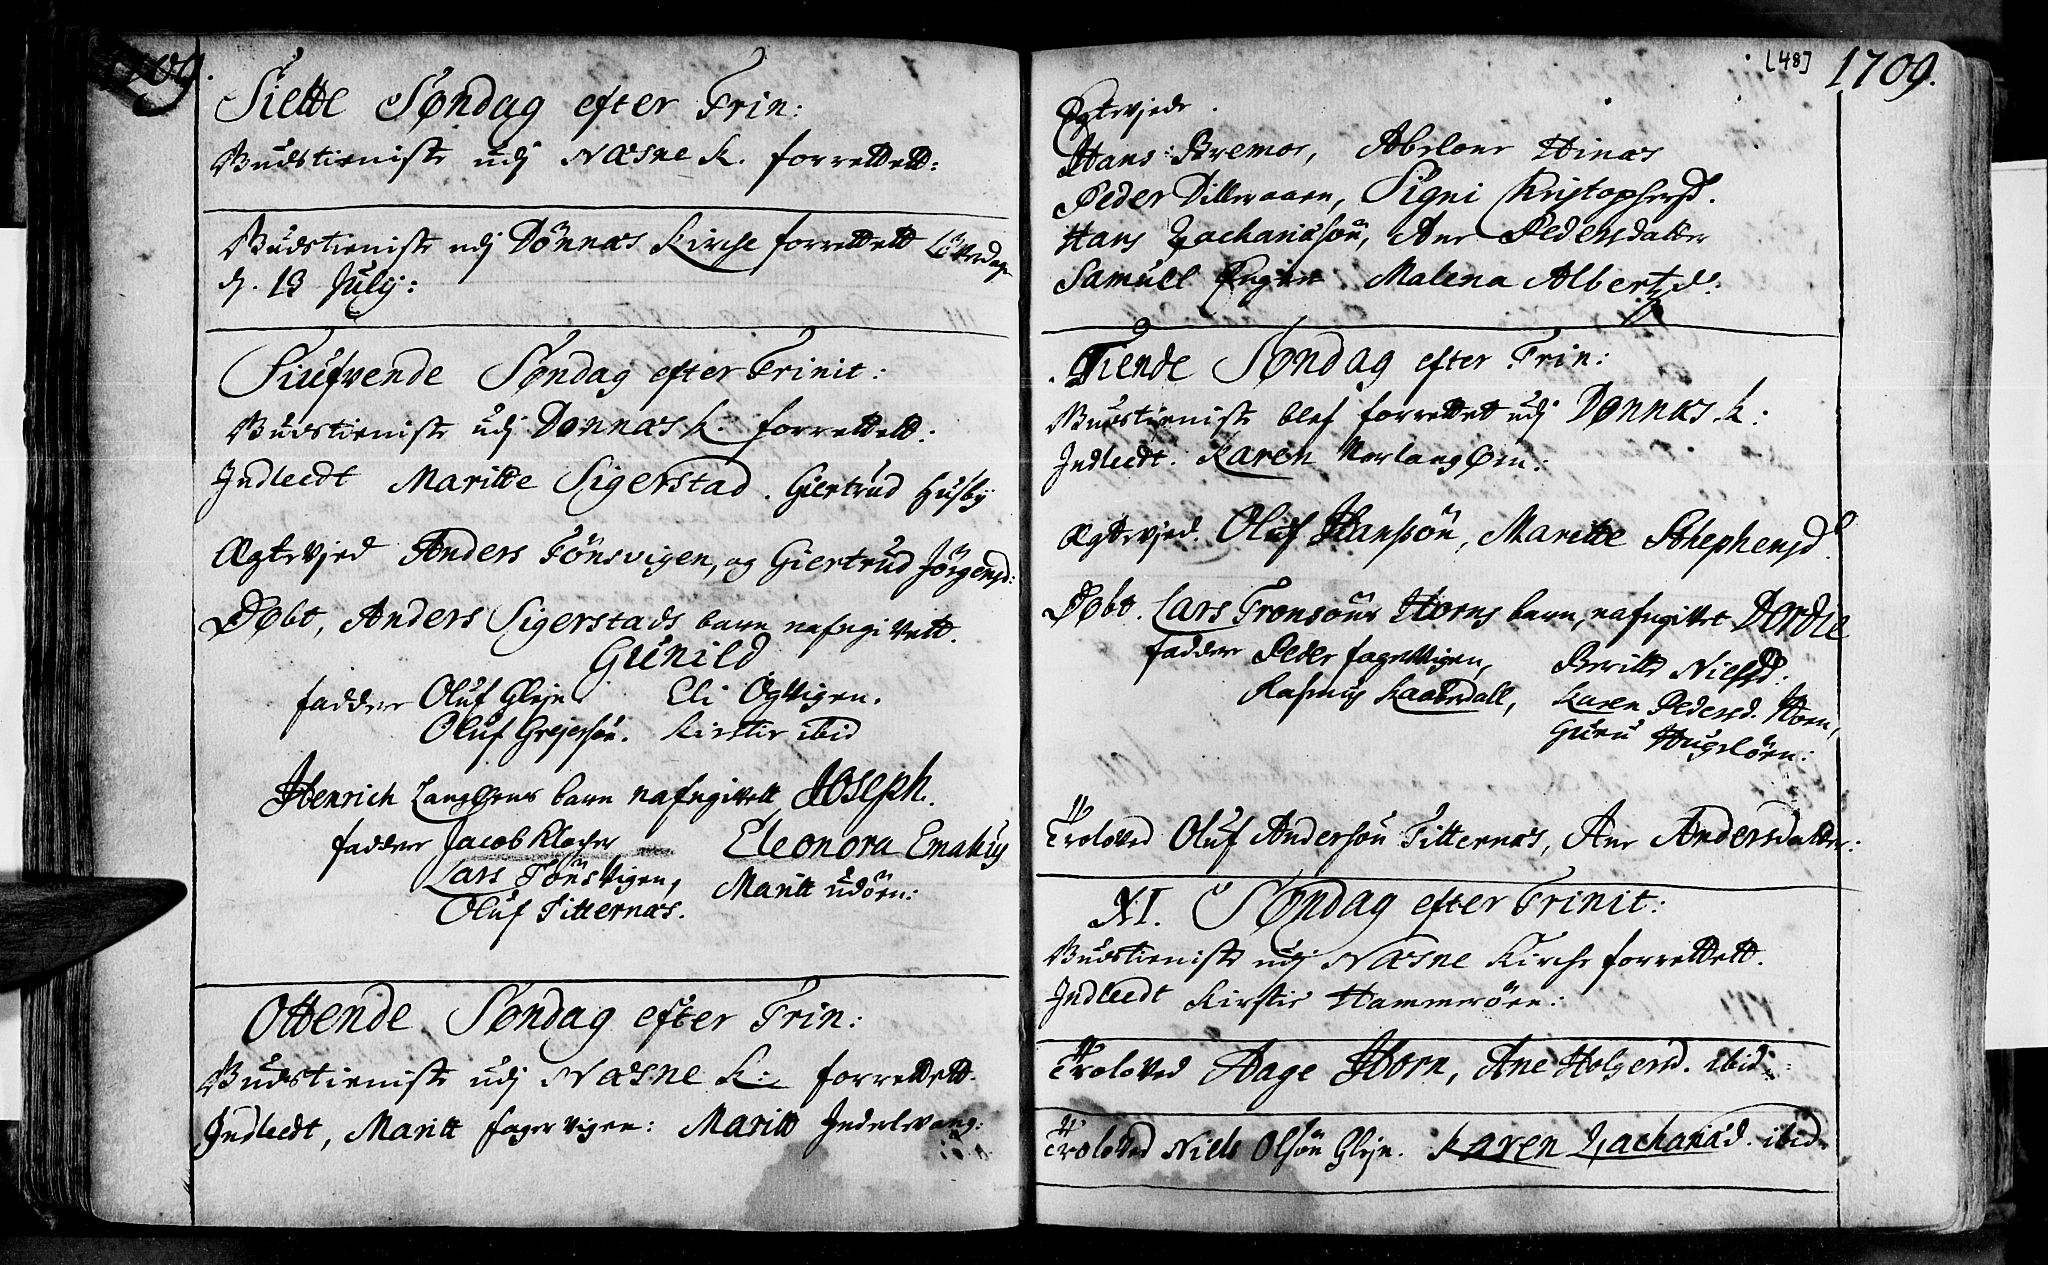 1709.
Siette Søndag efter Trin:
Gudstieniste udj Næsne K. forrettett:
Gudstieniste udj Dönnæs Kirche forrettett Löverdage
d. 13 Julij:
Siufvende Søndag efter Trinit:
Gudstieniste udj Dønnæs k. forrettett:
Indleedt Maritte Sigerstad. Giertrud Husbÿ
Ægtevjed Anders Tönsvigen, og Giertrud Jörgensd:
Døbt, Anders Sigerstads barn nafngivett.
Gunild
faddere Oluf Glejn Eli Ogvigen.
Oluf Grejersön. Kirstie ibid
Henrich Langørens barn nafngivett Joseph.
faddere Jacob Klocher Eleonora Emahus
Lars Tönsvigen, Maritt udören:
Oluf Titternæs.
Ottende Søndag efter Trin:
Gudstieniste udj Næsne K: forrettett.
Indleedt, Maritt fagervigen: Maritt Indrelvang:
[48] 1709.
Egtevjede.
Hans Bremor, Abelone Hinæs
Peder Dillevaaen, Signi Christophersd.
Hans Zachariäsön, Ane Pedersdatter
Samuel Engen. Malena Albertzd:
Tiende Søndag efter Trin:
Gudstieniste blef forrettet udj Dønnæs k:
Indleedt. Karen Norlangøen:
Ægtevjed. Oluf Hanssön, Maritte Stephensd.
Døbt. Lars Tronsöns Horns barn, nafngivet Dordie
faddere Peder fagervigen, Beritte Nielsd:
Rasmus Kaabedall, Karen Pedersd. Horn,
Guru Hugelören:
Troloved Oluf Andersön Titternæs, Ane Andersdatter:
XI. Søndag efter Trinit:
Gudstieniste udj Næsne Kirche forrettett.
Indleedt Kirstie Hammerören:
Troloved Aage Horn, Ane Holgersd. ibid:
Troloved Niels Olsön Glejn. Karen Zachariäd. ibid